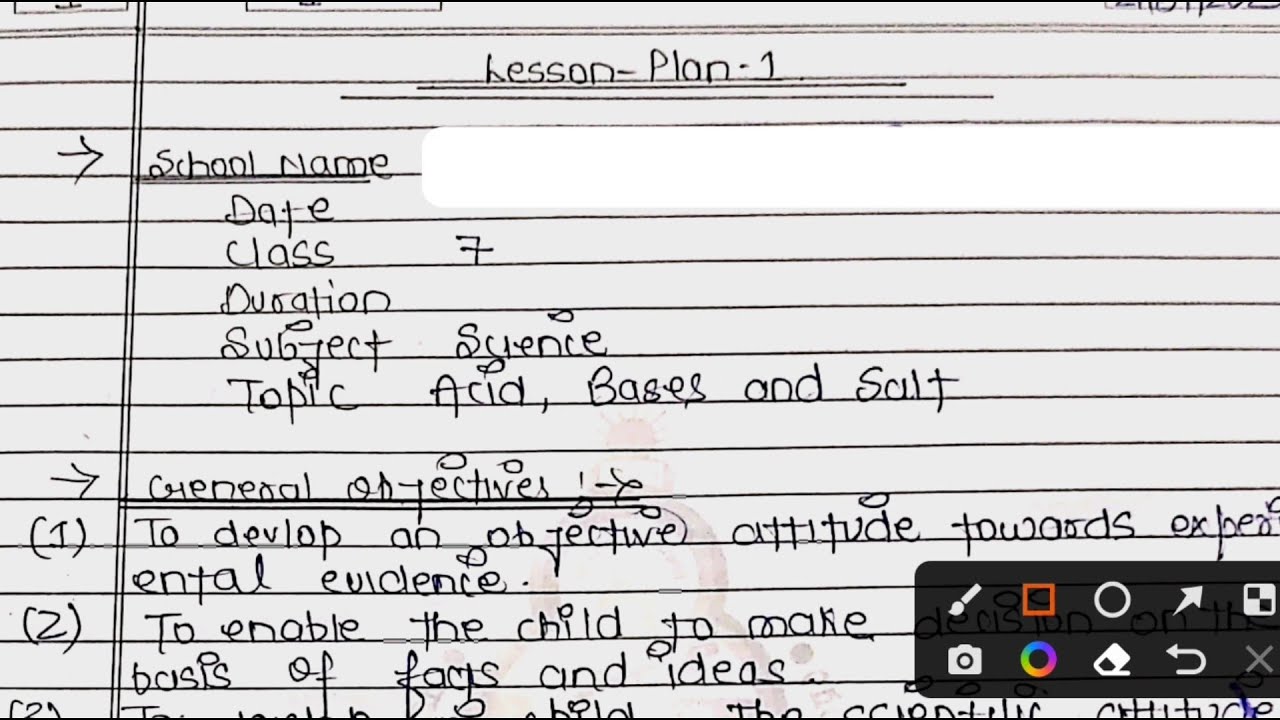 Lesson-Plan-1
→ School Name
Date
Class 7
Duration
Subject Science
Topic Acid, Bases and Salt
→ General objectives :→
(1) To devlop an objective attitude towards experi
ental evidence.
(2) To enable the child to make decision on the
basis of facts and ideas.
child the scientific attitude